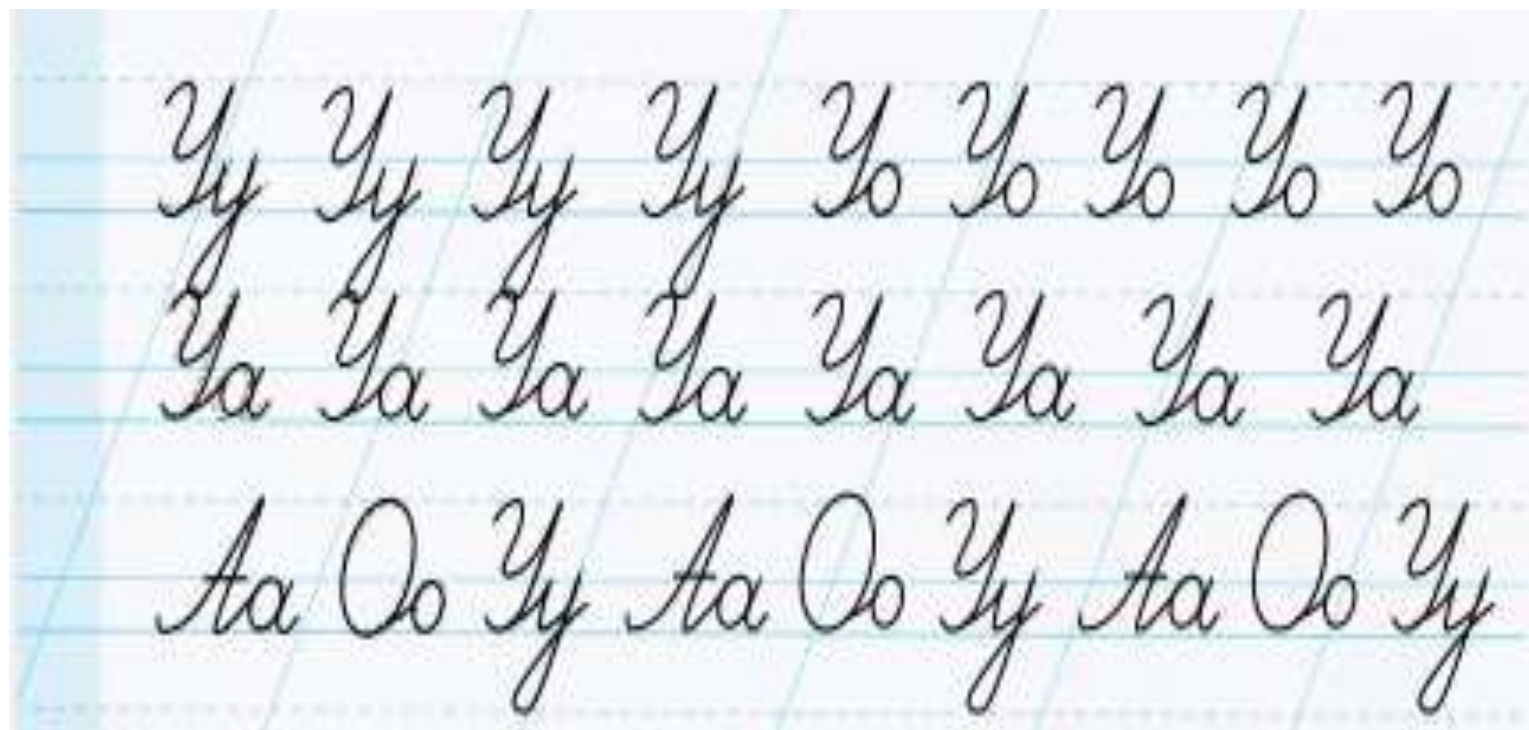 Уу Уу Уу Уу Уо Уо Уо Уо Уо
Уа Уа Уа Уа Уа Уа Уа Уа
Аа Оо Уу Аа Оо Уу Аа Оо Уу